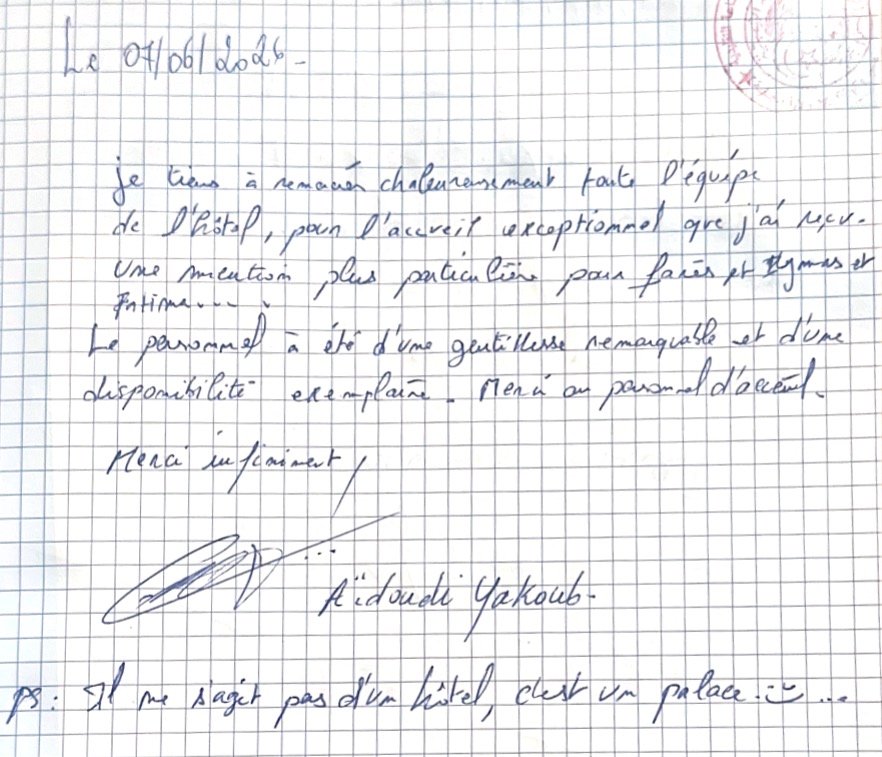 Le 07/06/2026 -
je tiens à remercier chaleureusement toute l'équipe
de l'hôtel, pour l'accueil exceptionnel que j'ai reçu.
Une mention plus particulière pour farès et et
Fatima....
Le personnel à été d'une gentillesse remarquable et d'une
disponibilité exemplaire. Merci au personnel d'accueil.
Merci infiniment /
Aïdoudi Yakoub-
ps: Il ne s'agit pas d'un hôtel, c'est un palace. ...